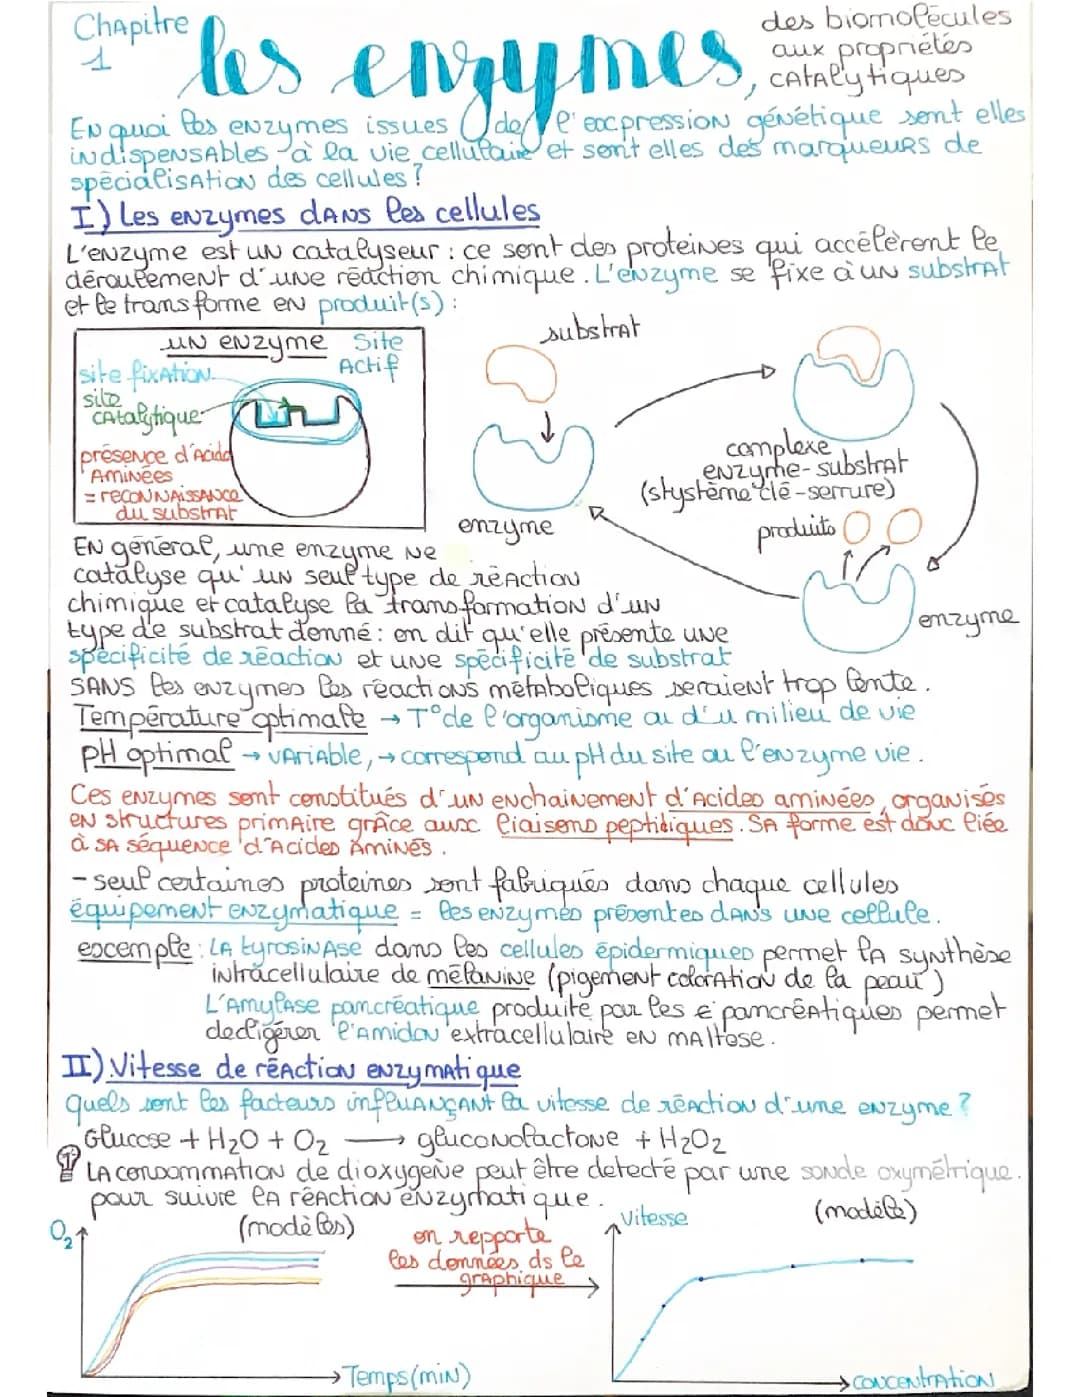 Chapitre 1
les enzymes,
des biomolécules
aux propriétés
catalytiques
En quoi les enzymes issues de l'expression génétique sont elles
indispensables à la vie cellulaire et sont elles des marqueurs de
spécialisation des cellules ?
I) Les enzymes dans les cellules
L'enzyme est un catalyseur : ce sont des proteines qui accélèrent le
déroulement d'une réaction chimique. L'enzyme se fixe à un substrat
et le transforme en produit(s) :
un enzyme
Site
Actif
site fixation
site
catalytique
présence d'Acides
Aminées
= reconnaissance
du substrat
substrat
enzyme
complexe
enzyme-substrat
(stystème clé-serrure)
produits
enzyme
En général, une enzyme ne
catalyse qu'un seul type de réaction
chimique et catalyse la transformation d'un
type de substrat donné : on dit qu'elle présente une
spécificité de réaction et une spécificité de substrat
SANS les enzymes les réactions métaboliques seraient trop lente.
Température optimale → T° de l'organisme ou d'u milieu de vie
pH optimal → variable, → correspond au pH du site ou l'enzyme vie.
Ces enzymes sont constitués d'un enchainement d'Acides aminées, organisés
en structures primaire grâce aux liaisons peptidiques. Sa forme est donc liée
à sa séquence d'Acides Aminés.
- seul certaines proteines sont fabriqués dans chaque cellules
équipement enzymatique = les enzymes présentes dans une cellule.
exemple : La tyrosinase dans les cellules épidermiques permet la synthèse
intracellulaire de mélanine (pigement coloration de la peau)
L'Amylase pancréatique produite par les ȼ pancréatiques permet
de digérer l'amidon extracellulaire en maltose.
II) Vitesse de réaction enzymatique
quels sont les facteurs influançant la vitesse de réaction d'une enzyme ?
Glucose + H₂O + O₂ → gluconolactone + H₂O₂
La consommation de dioxygène peut être detecté par une sonde oxymétrique
pour suivre la réaction enzymatique.
O₂
(modèles)
Temps (min)
on repporte
les données ds le
graphique
Vitesse
(modèle)
concentration